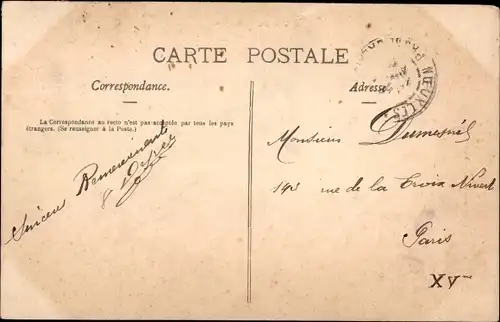 CARTE POSTALE
Correspondance.
Adresse
La Correspondance au recto n'est pas acceptée par tous les pays
étrangers. (Se renseigner à la Poste.)
Sincères Remerciements
Monsieur Dumesnil
rue de la Croix Nivert
Paris
XVme